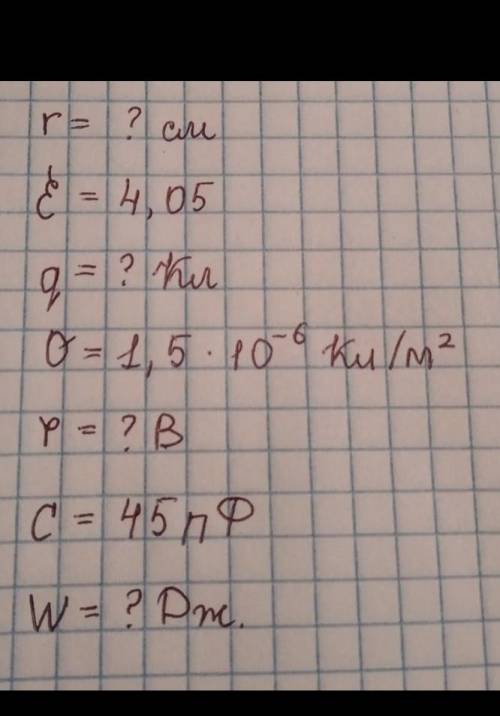 r = ? см
ε = 4,05
q = ? Кл
σ = 1,5 · 10⁻⁶ Кл/м²
φ = ? В
C = 45 пФ
W = ? Дж.